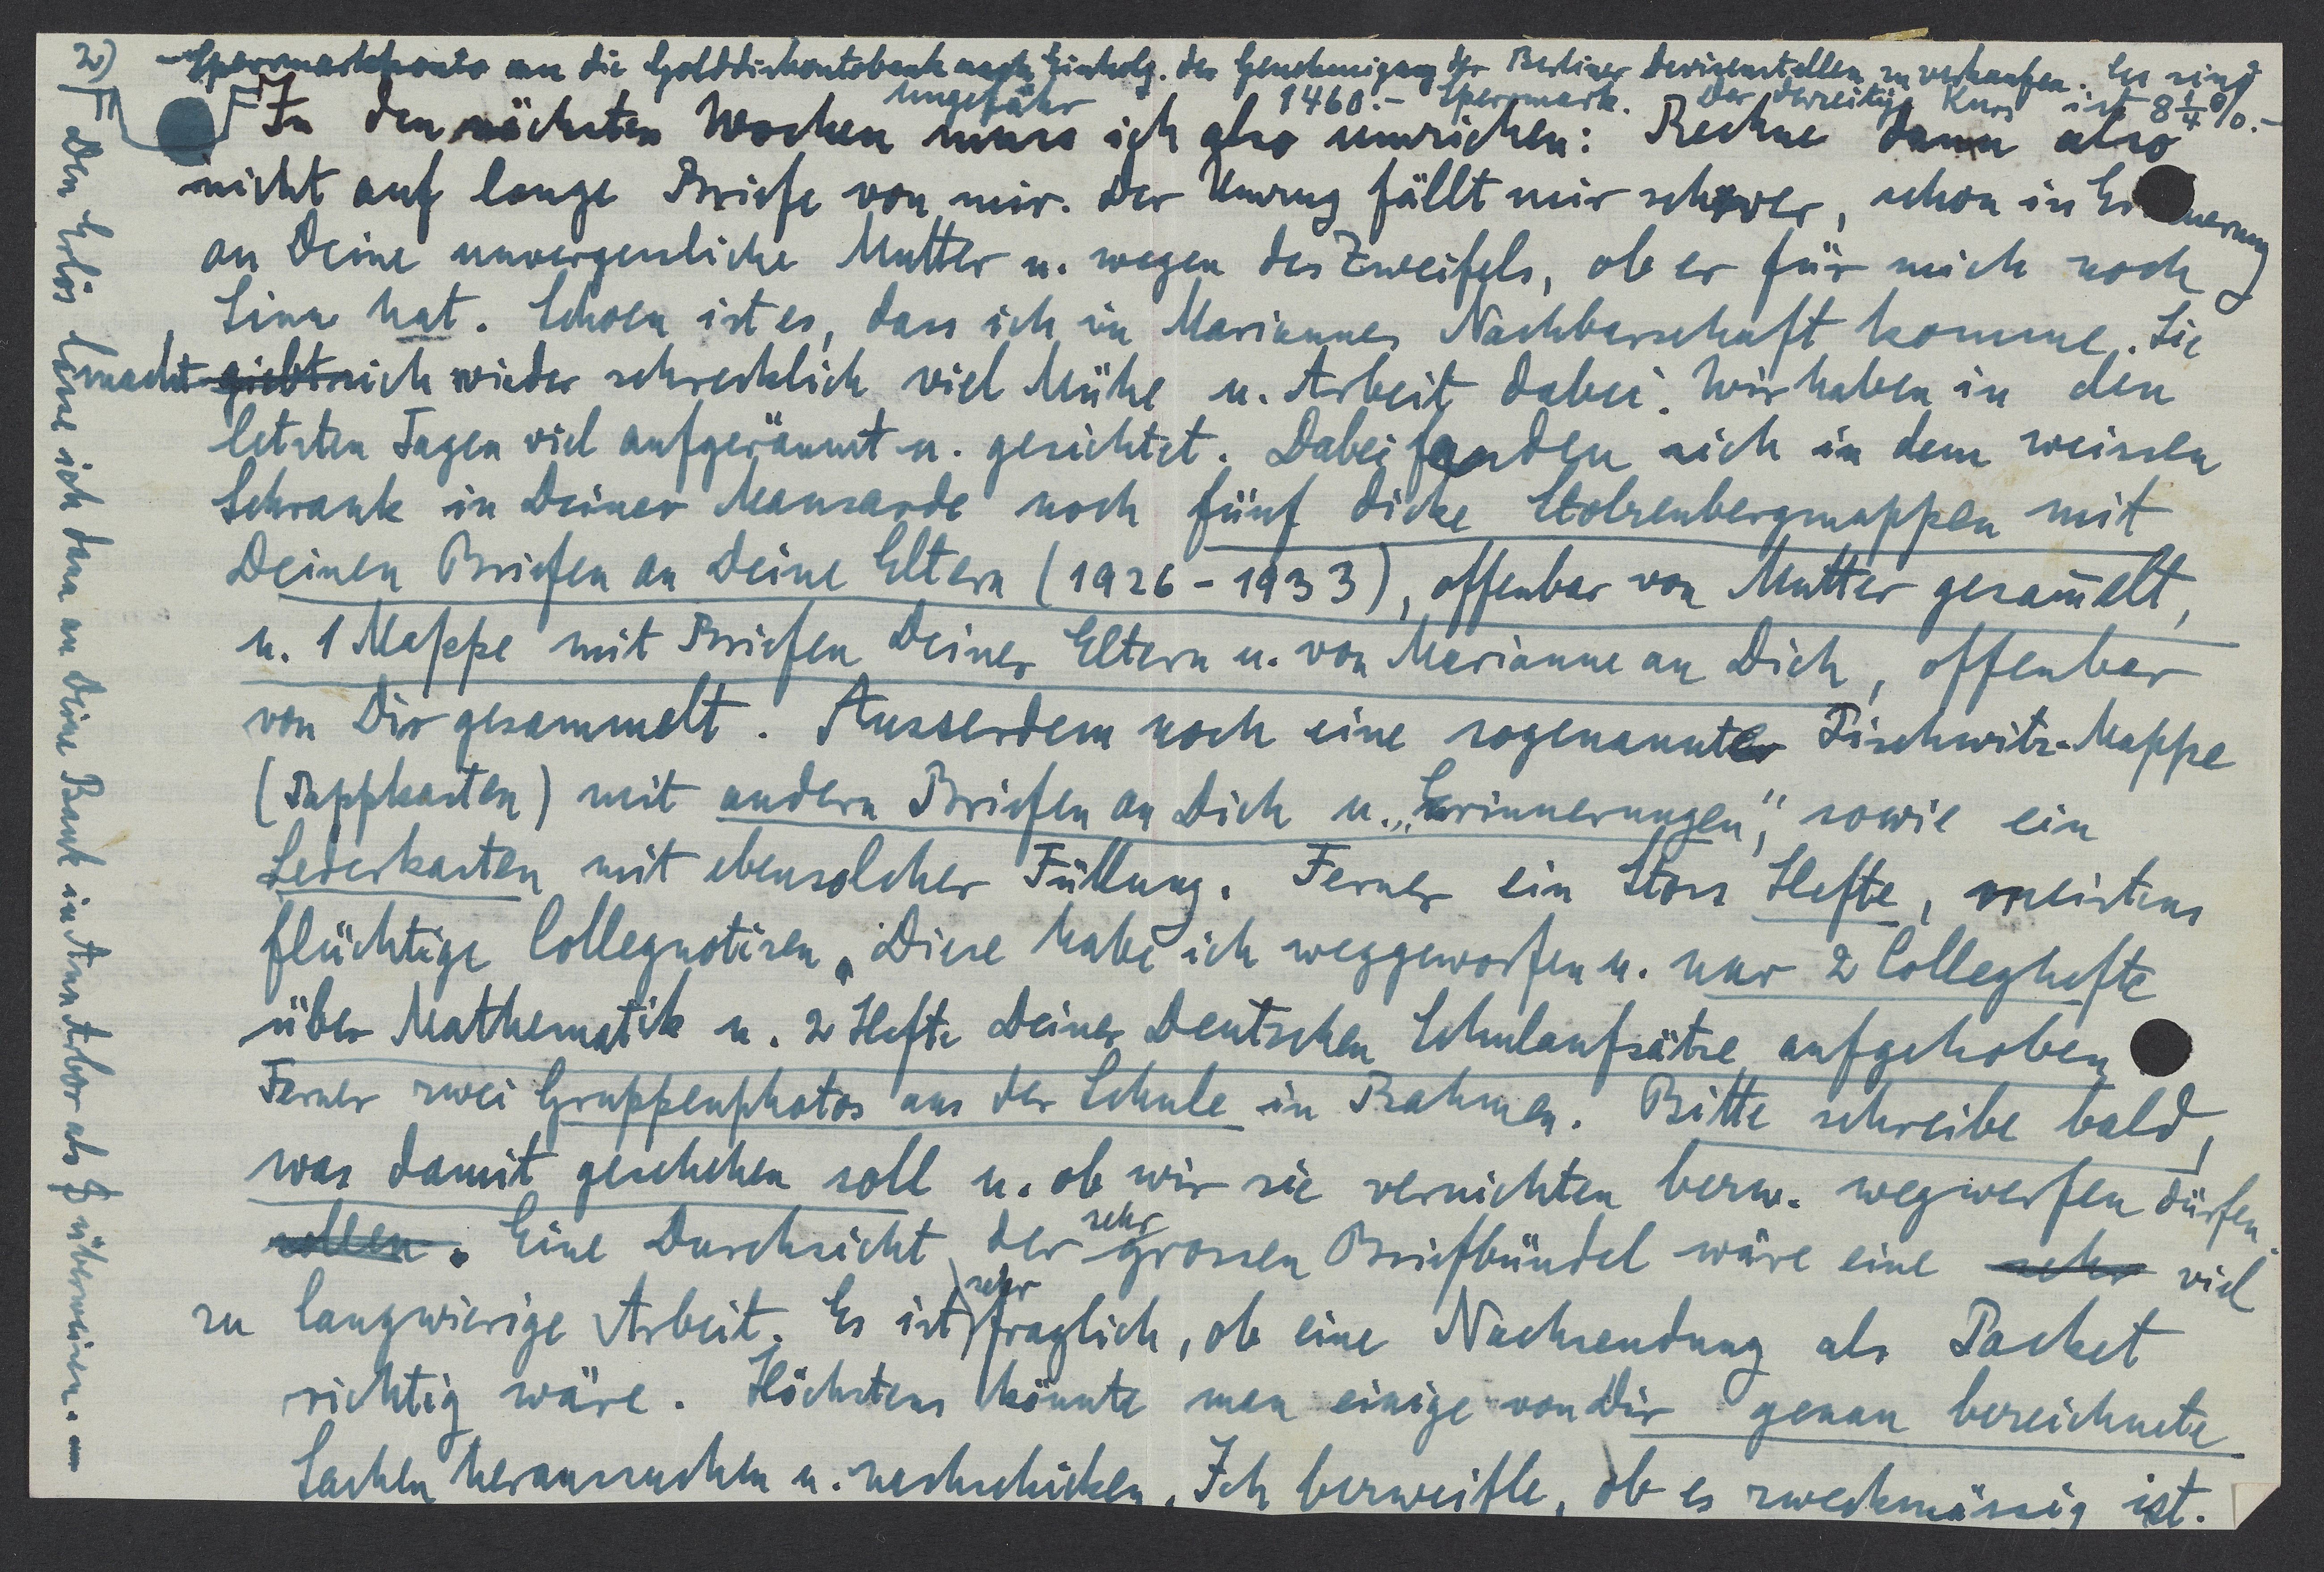 2)
-Sperrmarkkonto an die Golddiskontobank nach Einholg. der Genehmigung der Berliner Devisenstellen zu verkaufen. Es sind
ungefähr 1460.- Sperrmark. Der derzeitige Kurs ist 8 1/4 %.-
In den nächsten Wochen muss ich also umziehen: Rechne dann also
nicht auf lange Briefe von mir. Der Umzug fällt mir schwer, schon in Erinnerung
an Deine unvergessliche Mutter u. wegen des Zweifels, ob er für mich noch
Sinn hat. Schoen ist es, dass ich in Mariannes Nachbarschaft komme. Sie
macht giebt sich wieder schrecklich viel Mühe u. Arbeit dabei. Wir haben in den
letzten Tagen viel aufgeräumt u. gesichtet. Dabei fanden sich in dem weissen
Schrank in Deiner Mansarde noch fünf dicke Stolzenbergmappen mit
Deinen Briefen an Deine Eltern (1926-1933), offenbar von Mutter gesam̄elt,
u. 1 Mappe mit Briefen Deiner Eltern u. von Marianne an Dich, offenbar
von Dir gesammelt. Ausserdem noch eine sogenannte Tischwitz-Mappe
(Pappkasten) mit andern Briefen an Dich u. „Erinnerungen", sowie ein
Lederkasten mit ebensolcher Füllung. Ferner ein Stoss Hefte, meistens
flüchtige Collegnotizen. Diese habe ich weggeworfen u. nur 2 Colleghefte
über Mathematik u. 2 Hefte Deiner Deutschen Schulaufsätze aufgehoben
Ferner zwei Gruppenphotos aus der Schule in Rahmen. Bitte schreibe bald,
was damit geschehen soll u. ob wir sie vernichten bezw. wegwerfen dürfen.
sollen. Eine Durchsicht der sehr grossen Briefbündel wäre eine sehr viel
zu langwierige Arbeit. Es ist sehr fraglich, ob eine Nachsendung als Packet
richtig wäre. Höchstens könnte man einige von Dir genau bezeichnete
Sachen heraussuchen u. nachschicken. Ich bezweifle, ob es zweckmässig ist.
Den Erlös lasse ich dann an Deine Bank in Ann Arbor als $ überweisen.-